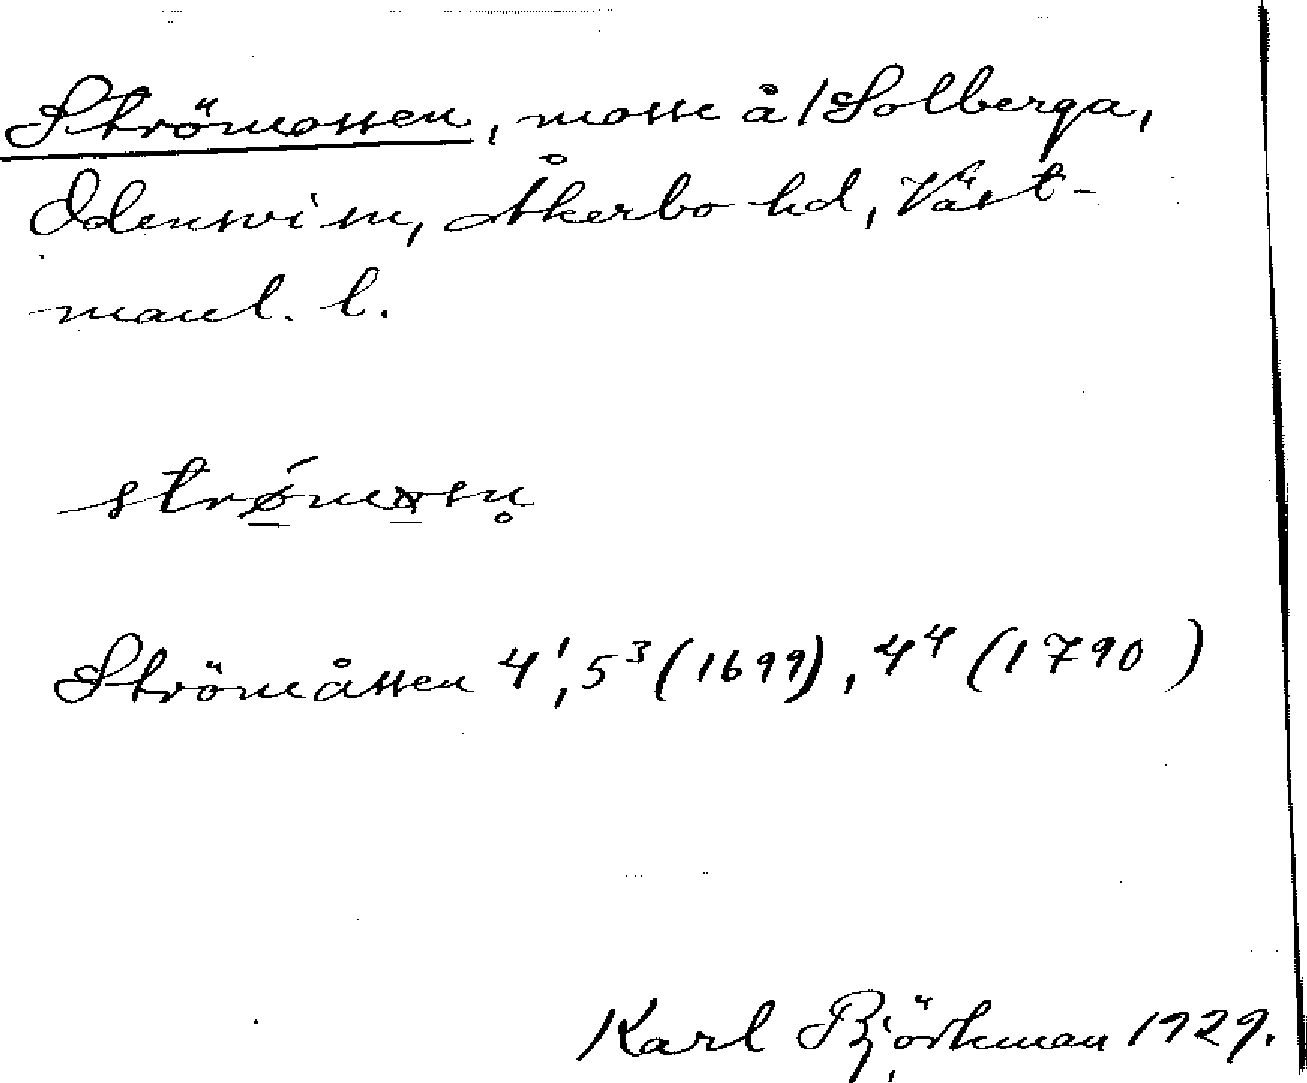 Strömossen, mosse å/Solberga,
Odensvi sn, Åkerbo hd, Väst-
manl. l.
Strömåssen 4¹, 5³ (1699), 4⁴ (1790)
Karl Björkman 1929.